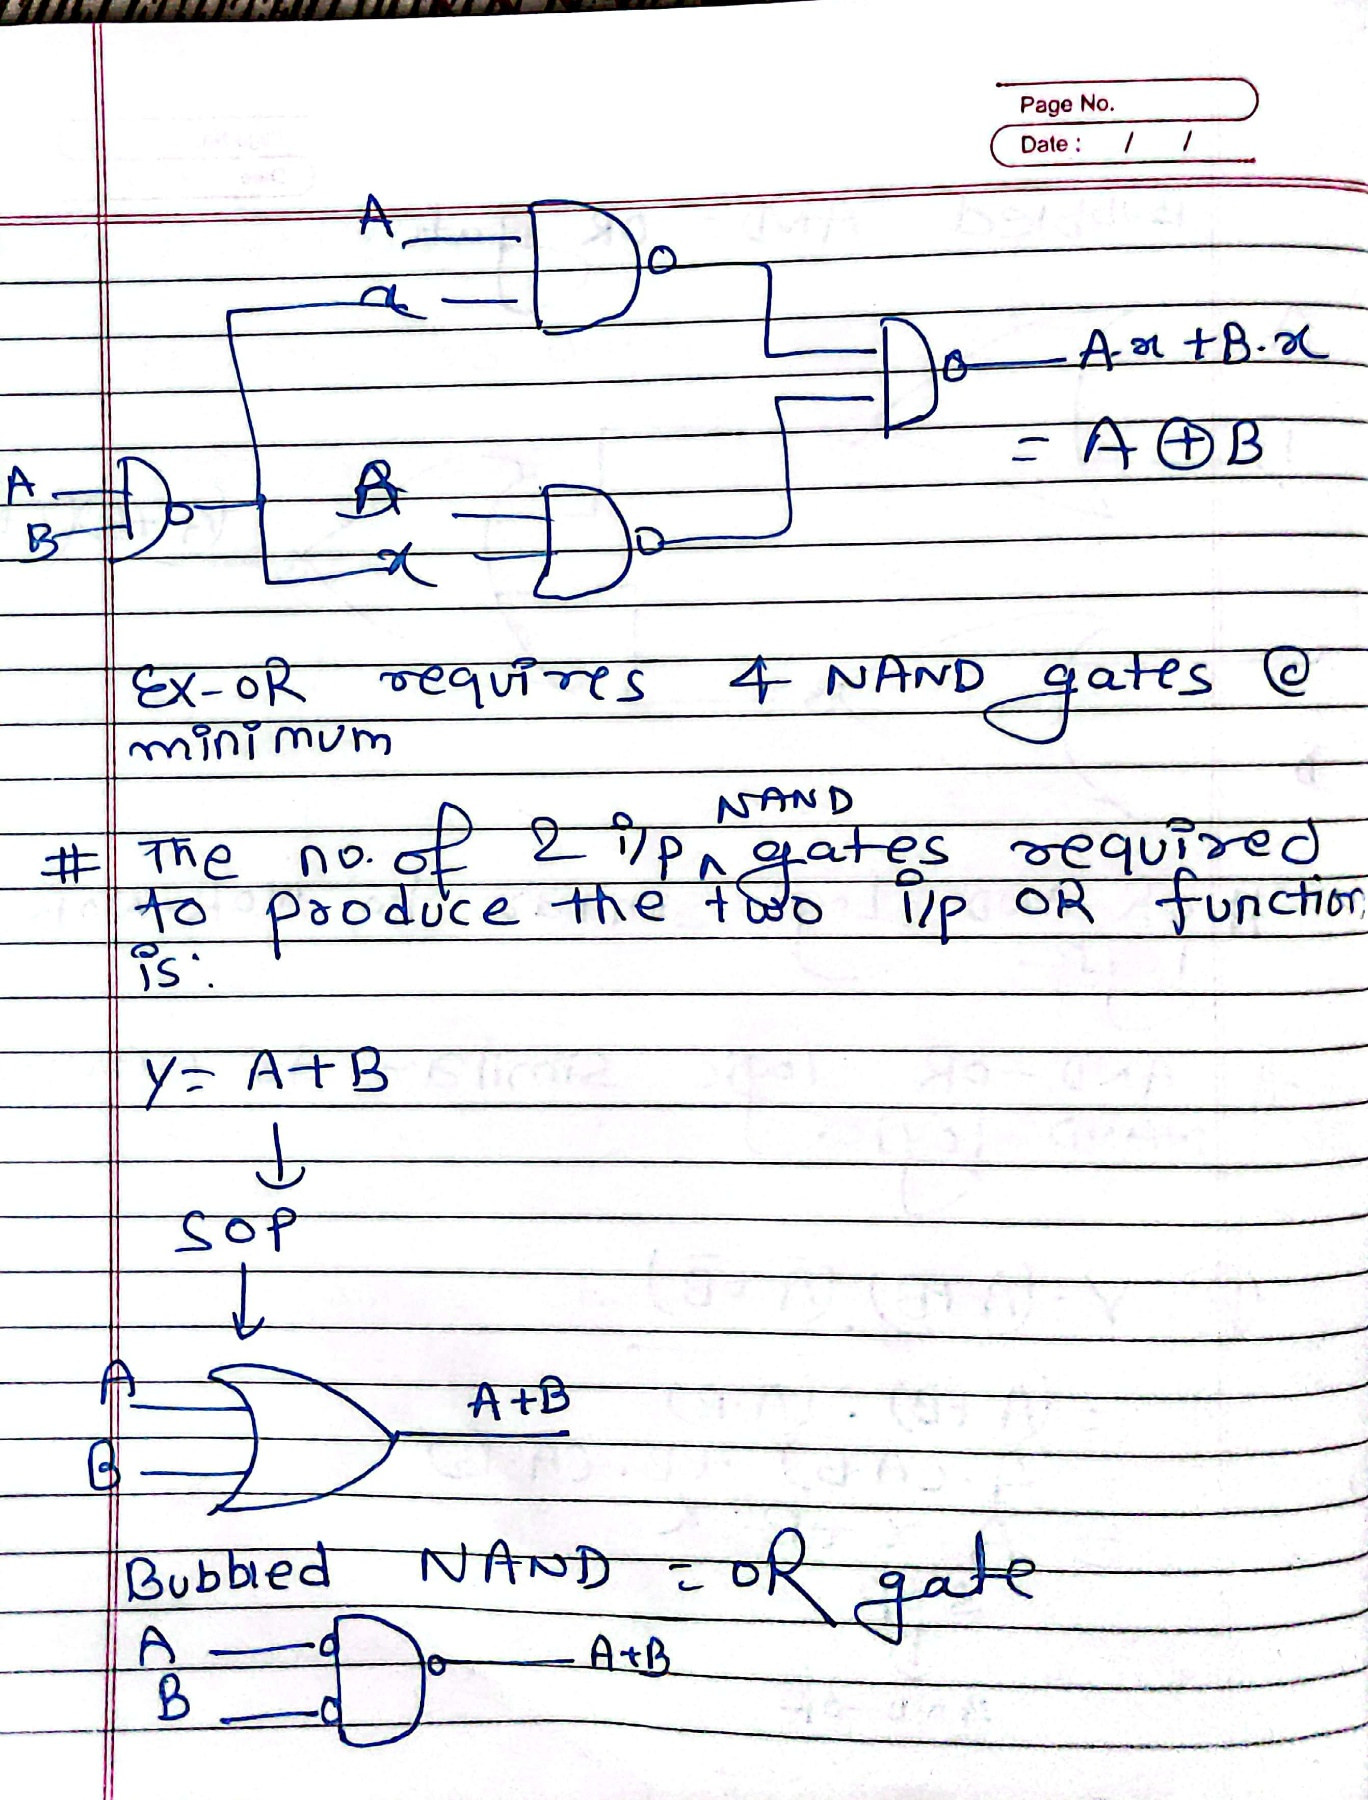 Page No.
Date : / /
A
x
A.x + B.x
= A ⊕ B
A
B
x
EX-OR requires 4 NAND gates @
minimum
NAND
# The no. of 2 i/p ^ gates required
to produce the two i/p OR function
is:
Y = A+B
↓
SOP
↓
A
A+B
B
Bubbled NAND = OR gate
A
A+B
B